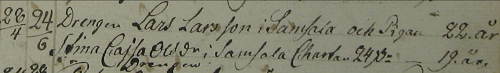 28/4 24/6 Drengen Lars Larsson i Samsala och Pigan 22. år
Stina Cajsa Olsdr i Samsala Charta 24 s 19. år
Drengen